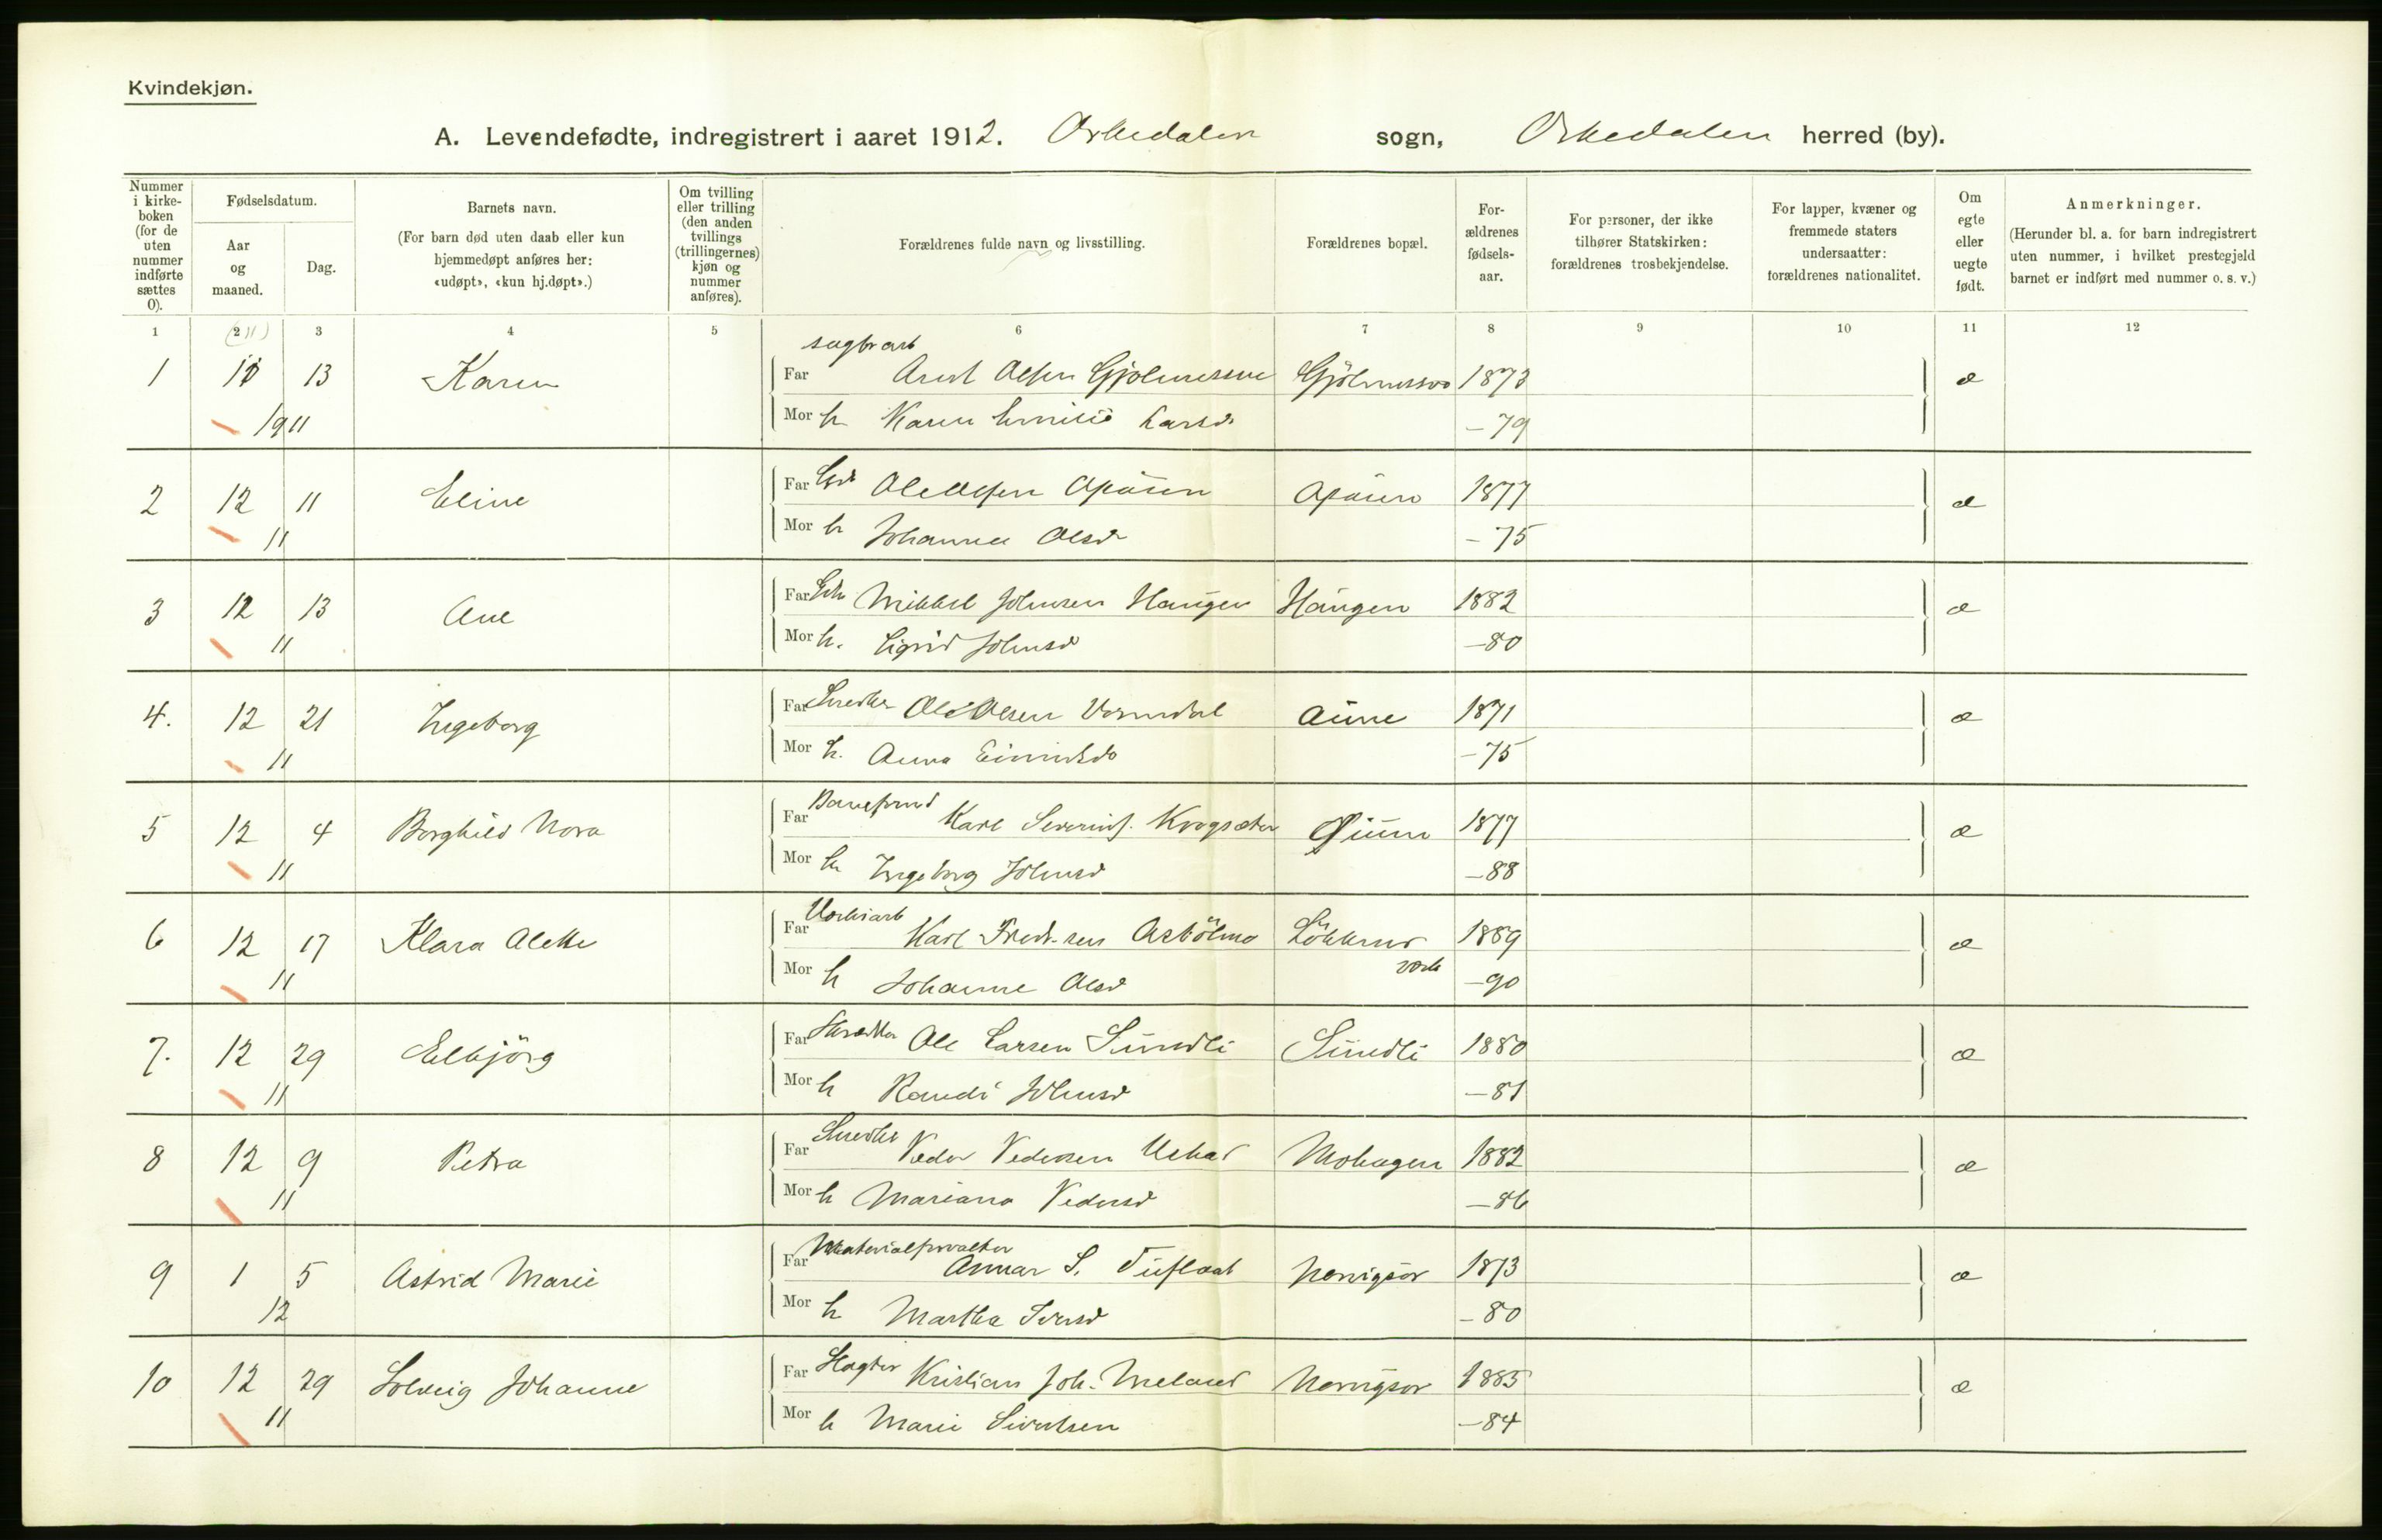 Kvindekjøn.
A. Levendefødte, indregistrert i aaret 1912. Orkedalen sogn, Orkedalen herred (by).
Nummer i kirkeboken (for de uten nummer indførte sættes 0).
Fødselsdatum.
Aar og maaned.
Dag.
Barnets navn.
(For barn død uten daab eller kun hjemmedøpt anføres her: «udøpt», «kun hj.døpt».)
Om tvilling eller trilling (den anden tvillings (trillingernes) kjøn og nummer anføres).
Forældrenes fulde navn og livsstilling.
Forældrenes bopæl.
Forældrenes fødselsaar.
For personer, der ikke tilhører Statskirken: forældrenes trosbekjendelse.
For lapper, kvæner og fremmede staters undersaatter: forældrenes nationalitet.
Om egte eller uegte født.
Anmerkninger.
(Herunder bl. a. for barn indregistrert uten nummer, i hvilket prestegjeld barnet er indført med nummer o. s. v.)
1 2 3 4 5 6 7 8 9 10 11 12
sagbrarb
1 11 13 Karen Far Arnt Olsen Gjølmesmo 1873 æ
1911 Mor h Karen Emilie Larsd -79
2 12 11 Eline Far Ole Olsen 1877 æ
11 Mor h Johanna Olsd -75
3 12 13 Ane Far Mikkel Johnsen Haugen Haugen 1882 æ
11 Mor h. Sigrid Johnsd -80
4. 12 21 Ingeborg Far Snedker Ole Olsen Vormdal Aune 1871 æ
11 Mor h. Anna -75
5 12 4 Borghild Nora Far Karl 1877 æ
11 Mor h Ingeborg Johnsd -88
6 12 17 Klara Alette Far Karl 1889 æ
verk
11 Mor h Johanne Olsd -90
7. 12 29 Eldbjörg Far Skrædder Ole Larsen Sundli Sundli 1880 æ
11 Mor h Randi Johnsd -81
8 12 9 Petra Far Snedker Peder Pedersen Mohagen 1882 æ
11 Mor h Mariana Pedersd -86
9 1 5 Astrid Marie Far Materialforvalter 1873 æ
12 Mor h Martha Iversd -80
10 12 29 Solveig Johanne Far Slagter Kristian Joh. Meland 1885 æ
11 Mor h Marie Sivertsen -84